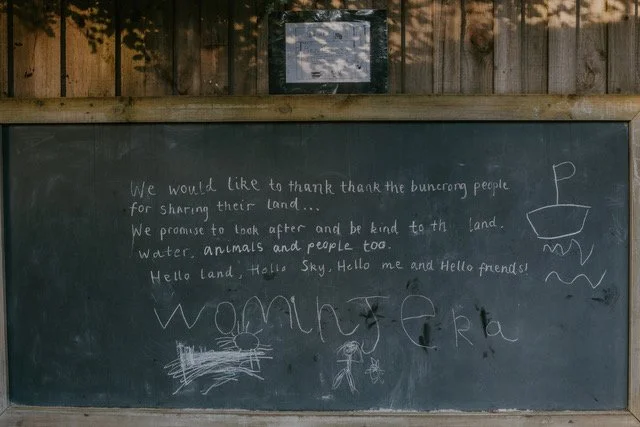 We would like to thank thank the buncrong people
for sharing their land...
We promise to look after and be kind to th land.
Water, animals and people too.
Hello land, Hello Sky, Hello me and Hello friends!
WominJEka